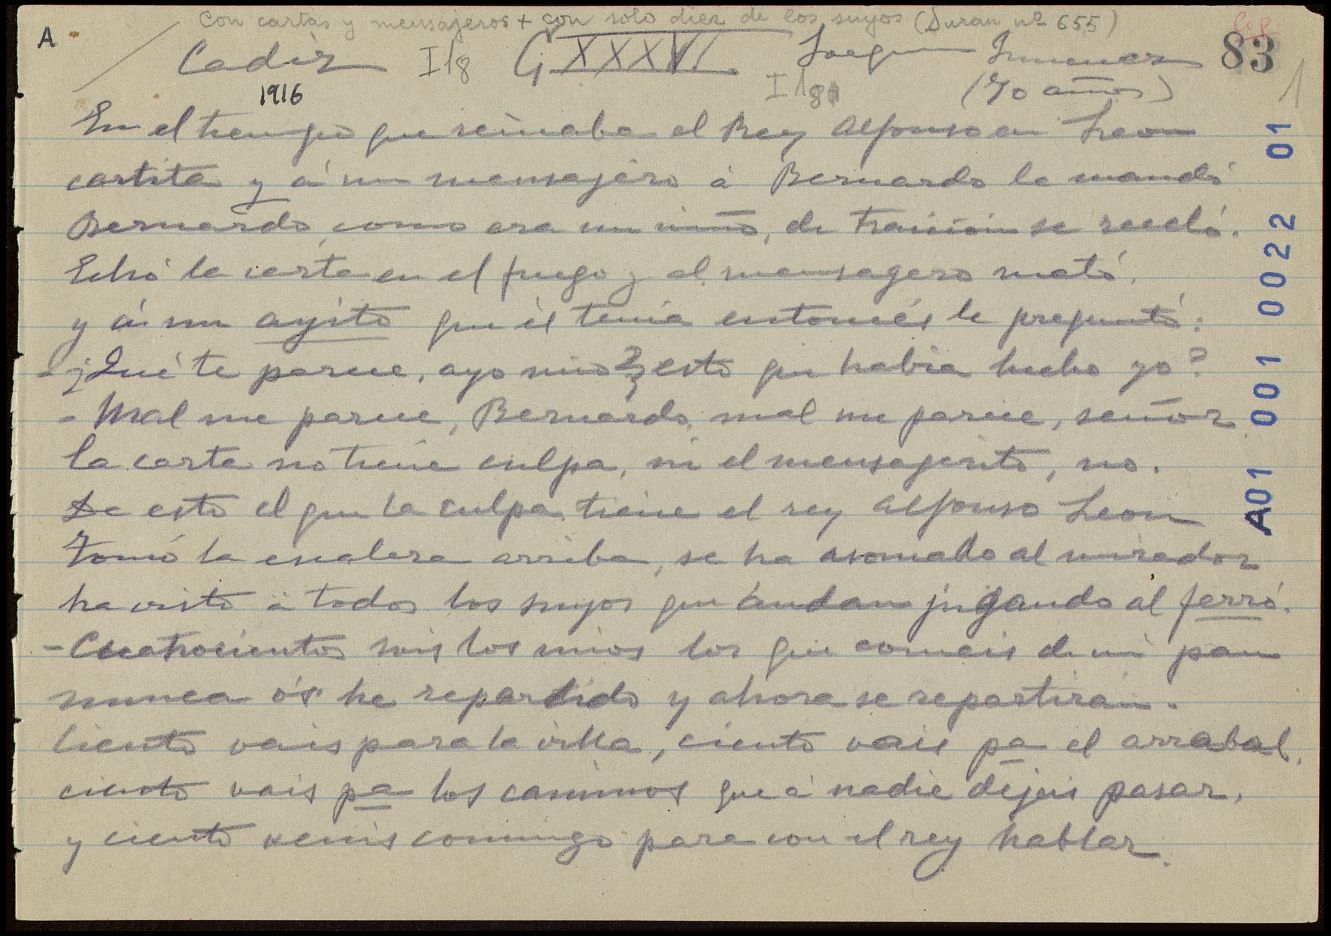 Con cartas y mensajeros + con solo diez de los suyos (Duran nº 655)
A
Cadiz I 18 G XXXVI Joaquin Jimenez 83
1916 I 18 (70 años) 1
En el tiempo que reinaba el Rey Alfonso en Leon
cartita y á un mensajero á Bernardo le mandó
Bernardo, como era un niño, de traicion se receló.
Echó la carta en el fuego y al mensagero mató,
y á un ayito que él tenia entonces le preguntó:
- ¿Qué te parece, ayo mio, esto que habia hecho yo?
- Mal me parece, Bernardo, mal me parece, señor
la carta no tiene culpa, ni el mensagerito, no.
De esto el que la culpa tiene el rey Alfonso Leon
Tomó la escalera arriba, se ha asomado al mirador
ha visto á todos los suyos que andan jugando al ferró.
- Cuatrocientos sois los mios los que comeis de mi pan
nunca ós he repartido y ahora se repartirán.
Ciento vais para la villa, ciento vais pa el arrabal,
ciento vais pa los caminos que á nadie dejeis pasar,
y ciento venis comingo para con el rey hablar.
A01 001 0022 01